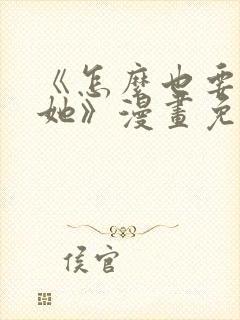 《怎麼也要
她》漫畫免
侯官